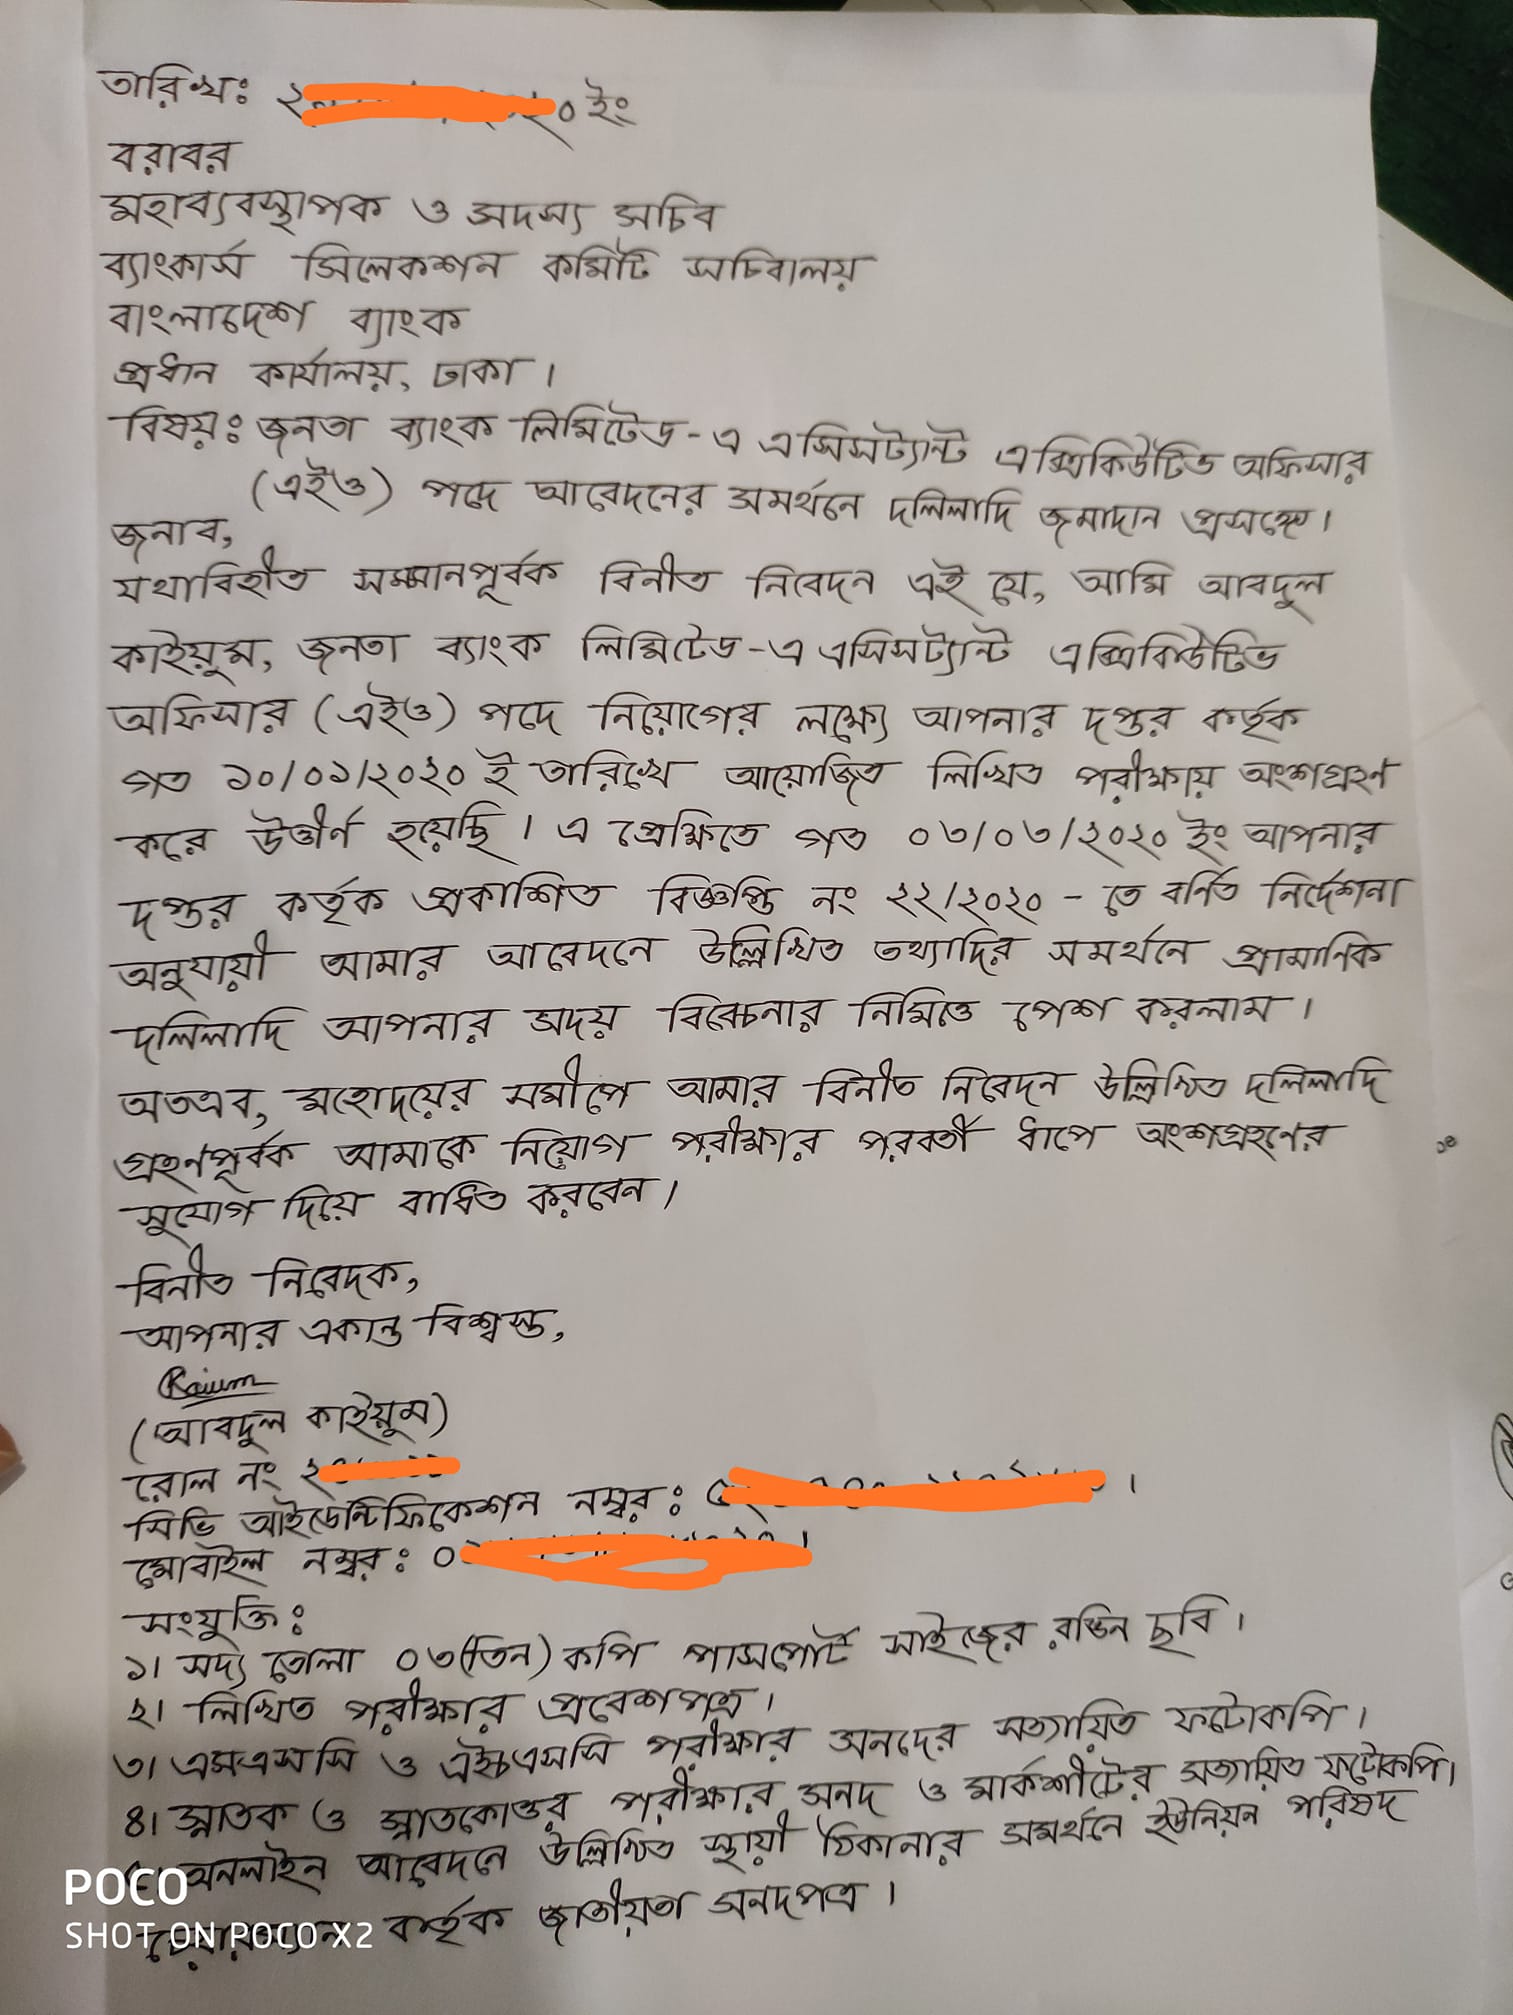 তারিখঃ ২ ০ ইং
বরাবর
মহাব্যবস্থাপক ও সদস্য সচিব
ব্যাংকার্স সিলেকশন কমিটি সচিবালয়
বাংলাদেশ ব্যাংক
প্রধান কার্যালয়, ঢাকা ।
বিষয়ঃ জনতা ব্যাংক লিমিটেড-এ এসিসট্যান্ট এক্সিকিউটিভ অফিসার
(এইও) পদে আবেদনের সমর্থনে দলিলাদি জমাদান প্রসঙ্গে।
জনাব,
যথাবিহীত সম্মানপূর্বক বিনীত নিবেদন এই যে, আমি আবদুল
কাইয়ুম, জনতা ব্যাংক লিমিটেড-এ এসিসট্যান্ট এক্সিকিউটিভ
অফিসার (এইও) পদে নিয়োগের লক্ষ্যে আপনার দপ্তর কর্তৃক
গত ১০/০১/২০২০ ই তারিখে আয়োজিত লিখিত পরীক্ষায় অংশগ্রহণ
করে উত্তীর্ণ হয়েছি । এ প্রেক্ষিতে গত ০৩/০৩/২০২০ ইং আপনার
দপ্তর কর্তৃক প্রকাশিত বিজ্ঞপ্তি নং ২২/২০২০ - তে বর্ণিত নির্দেশনা
অনুযায়ী আমার আবেদনে উল্লিখিত তথ্যাদির সমর্থনে প্রামাণিক
দলিলাদি আপনার সদয় বিবেচনার নিমিত্তে পেশ করলাম ।
অতএব, মহোদয়ের সমীপে আমার বিনীত নিবেদন উল্লিখিত দলিলাদি
গ্রহণপূর্বক আমাকে নিয়োগ পরীক্ষার পরবর্তী ধাপে অংশগ্রহণের
সুযোগ দিয়ে বাধিত করবেন ।
বিনীত নিবেদক,
আপনার একান্ত বিশ্বস্ত,
Kaium
(আবদুল কাইয়ুম)
রোল নং ২
সিভি আইডেন্টিফিকেশন নম্বর : ৫ ।
মোবাইল নম্বর : ০
সংযুক্তি :
১। সদ্য তোলা ০৩(তিন) কপি পাসপোর্ট সাইজের রঙিন ছবি ।
২। লিখিত পরীক্ষার প্রবেশপত্র ।
৩। এসএসসি ও এইচএসসি পরীক্ষার সনদের সত্যায়িত ফটোকপি ।
৪। স্নাতক ও স্নাতকোত্তর পরীক্ষার সনদ ও মার্কশীটের সত্যায়িত ফটোকপি ।
অনলাইন আবেদনে উল্লিখিত স্থায়ী ঠিকানার সমর্থনে ইউনিয়ন পরিষদ
কর্তৃক জাতীয়তা সনদপত্র ।
POCO
SHOT ON POCO X2